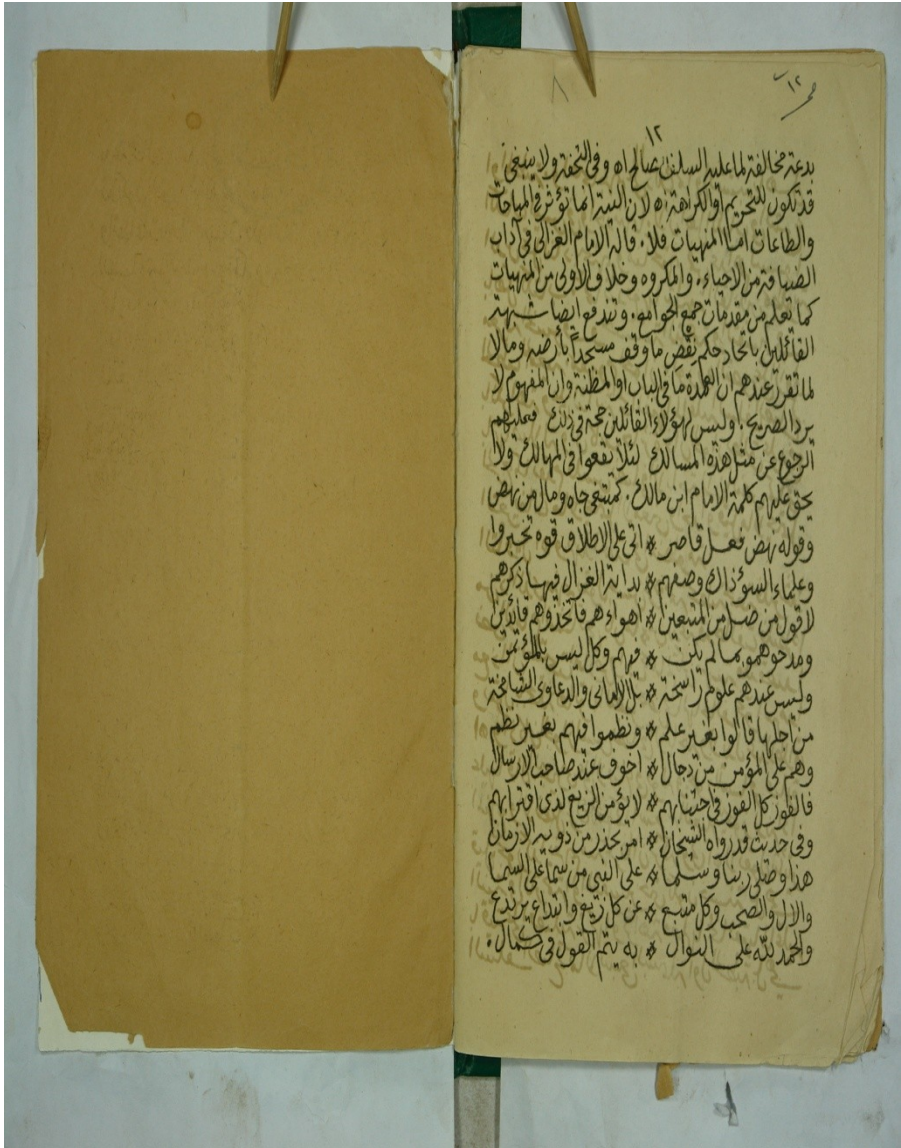 صحـ ١٢
٨
١٢
بدعة مخالفة لما عليه السلف صالح اه وفى التحفة ولا ينبغى
قد تكون للتحريم او الكراهة اه لان النية انما تؤثر فى المباحات
والطاعات اما المنهيات فلا. قاله الامام الغزالى فى آداب
الضيافة من الاحياء. والمكروه وخلاف الاولى من المنهيات
كما تعلم من مقدمات جمع الجوامع. وتندفع ايضا شبهة
القائلين باتحاد حكم نقض ما وقف مسجدا بأرضه وما لا
لما تقرر عندهم ان العمدة ما فى الباب او المظنة وان المفهوم لا
يرد الصريح. وليس لهؤلاء القائلين حجة فى ذلك فعليهم
الرجوع عن مثل هذه المسالك لئلا يقعوا فى المهالك ولا
يحق عليهم كلمة الامام ابن مالك. كمبتغى جاه ومال من نهض
وقوله نهض فعل قاصر * اتى على الاطلاق قوه تخبروا
وعلماء السوء ذاك وصفهم * بداية الغزال فيها ذكرهم
لا قول من ضل من المتبعين * اهواءهم فاتخذوهم قائدين
ومدحوهمو بما لم يكن * فيهم وكل ليس بالمؤتمن
وليس عندهم علوم راسخة * بل الامانى والدعاوى الشامخة
من اجلها قالوا بغير علم * ونظموا فيهم بغير نظم
وهم على المؤمن من دجال * اخوف عند صاحب الارسال
فالفوز كل الفوز فى اجتنابهم * لا يؤمن الزيغ لدى اقترابهم
وفى حديث قد رواه الشيخان * امر بحذر من ذويه الازمان
هذا وصلى ربنا وسلما * على النبى من سما على السما
والال والصحب وكل متبع * عن كل زيغ وابتداع يرتدع
والحمد لله على النوال * به يتم القول فى كمال.